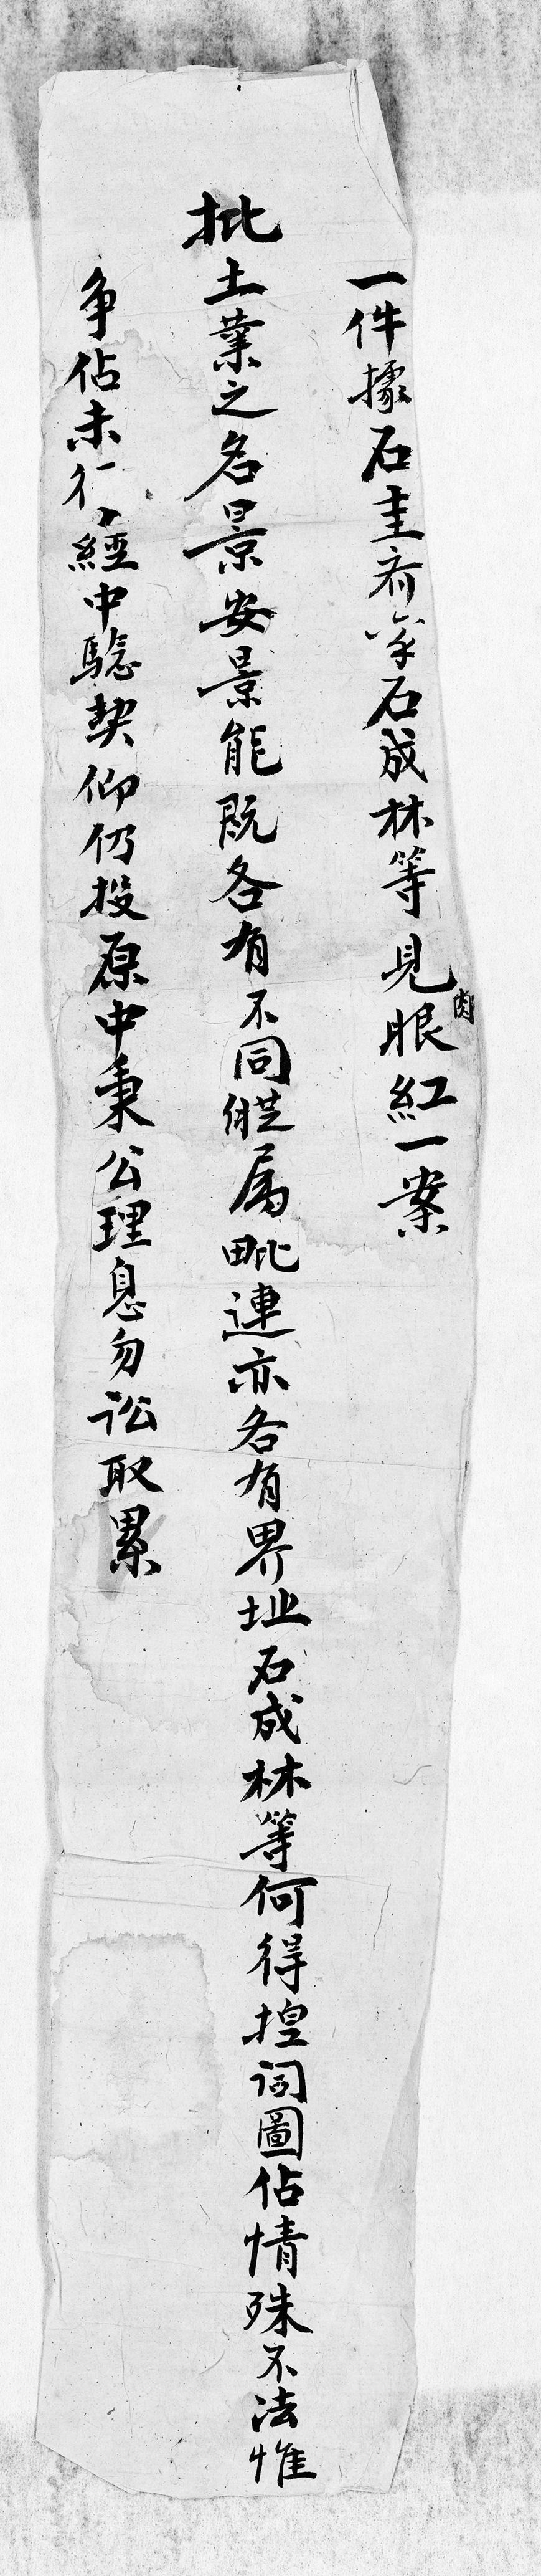 一件據石圭斎等石成林等見肉眼紅一案
批土業之名景安景能既各有不同縱属毗連亦各有界址石成林等何得揑詞圖佔情殊不法惟
争佔未行經中騐契仰仍投原中秉公理息勿訟取累